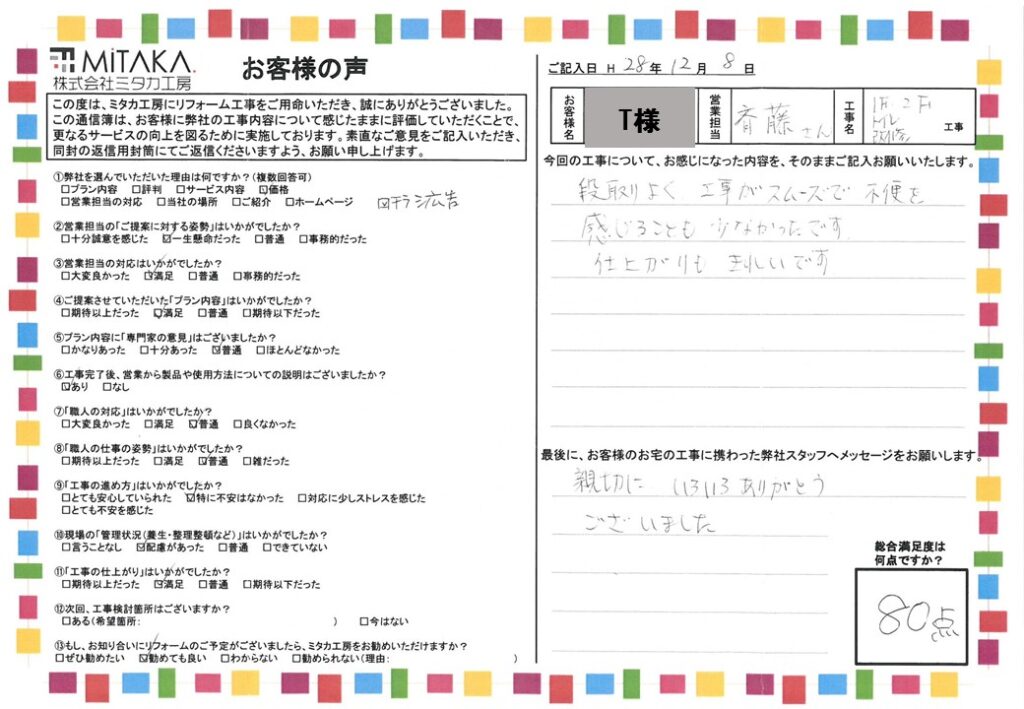 MiTAKA.
株式会社ミタカ工房
お客様の声
この度は、ミタカ工房にリフォーム工事をご用命いただき、誠にありがとうございました。
この通信簿は、お客様に弊社の工事内容について感じたままに評価していただくことで、
更なるサービスの向上を図るために実施しております。素直なご意見をご記入いただき、
同封の返信用封筒にてご返信くださいますよう、お願い申し上げます。
①弊社を選んでいただいた理由は何ですか?(複数回答可)
□プラン内容 □評判 □サービス内容 ☑価格
□営業担当の対応 □当社の場所 □ご紹介 □ホームページ ☑チラシ広告
②営業担当の「ご提案に対する姿勢」はいかがでしたか?
□十分誠意を感じた ☑一生懸命だった □普通 □事務的だった
③営業担当の対応はいかがでしたか?
□大変良かった ☑満足 □普通 □事務的だった
④ご提案させていただいた「プラン内容」はいかがでしたか?
□期待以上だった ☑満足 □普通 □期待以下だった
⑤プラン内容に「専門家の意見」はございましたか?
□かなりあった □十分あった ☑普通 □ほとんどなかった
⑥工事完了後、営業から製品や使用方法についての説明はございましたか?
☑あり □なし
⑦「職人の対応」はいかがでしたか?
□大変良かった □満足 ☑普通 □良くなかった
⑧「職人の仕事の姿勢」はいかがでしたか?
□期待以上だった □満足 ☑普通 □雑だった
⑨「工事の進め方」はいかがでしたか?
□とても安心していられた ☑特に不安はなかった □対応に少しストレスを感じた
□とても不安を感じた
⑩現場の「管理状況(養生・整理整頓など)」はいかがでしたか?
□言うことなし ☑配慮があった □普通 □できていない
⑪「工事の仕上がり」はいかがでしたか?
□期待以上だった ☑満足 □普通 □期待以下だった
⑫次回、工事検討箇所はございますか?
□ある(希望箇所: ) □今はない
⑬もし、お知り合いにリフォームのご予定がございましたら、ミタカ工房をお勧めいただけますか?
□ぜひ勧めたい ☑勧めても良い □わからない □勧められない(理由: )
ご記入日 H 28年 12月 8日
お客様名 T様 営業担当 斉藤さん 工事名 1F.2F トイレ 改修 工事
今回の工事について、お感じになった内容を、そのままご記入お願いいたします。
段取りよく 工事がスムーズで 不便を
感じることも 少なかったです。
仕上がりも きれいです
最後に、お客様のお宅の工事に携わった弊社スタッフへメッセージをお願いします。
親切に いろいろ ありがとう
ございました
総合満足度は
何点ですか?
80点